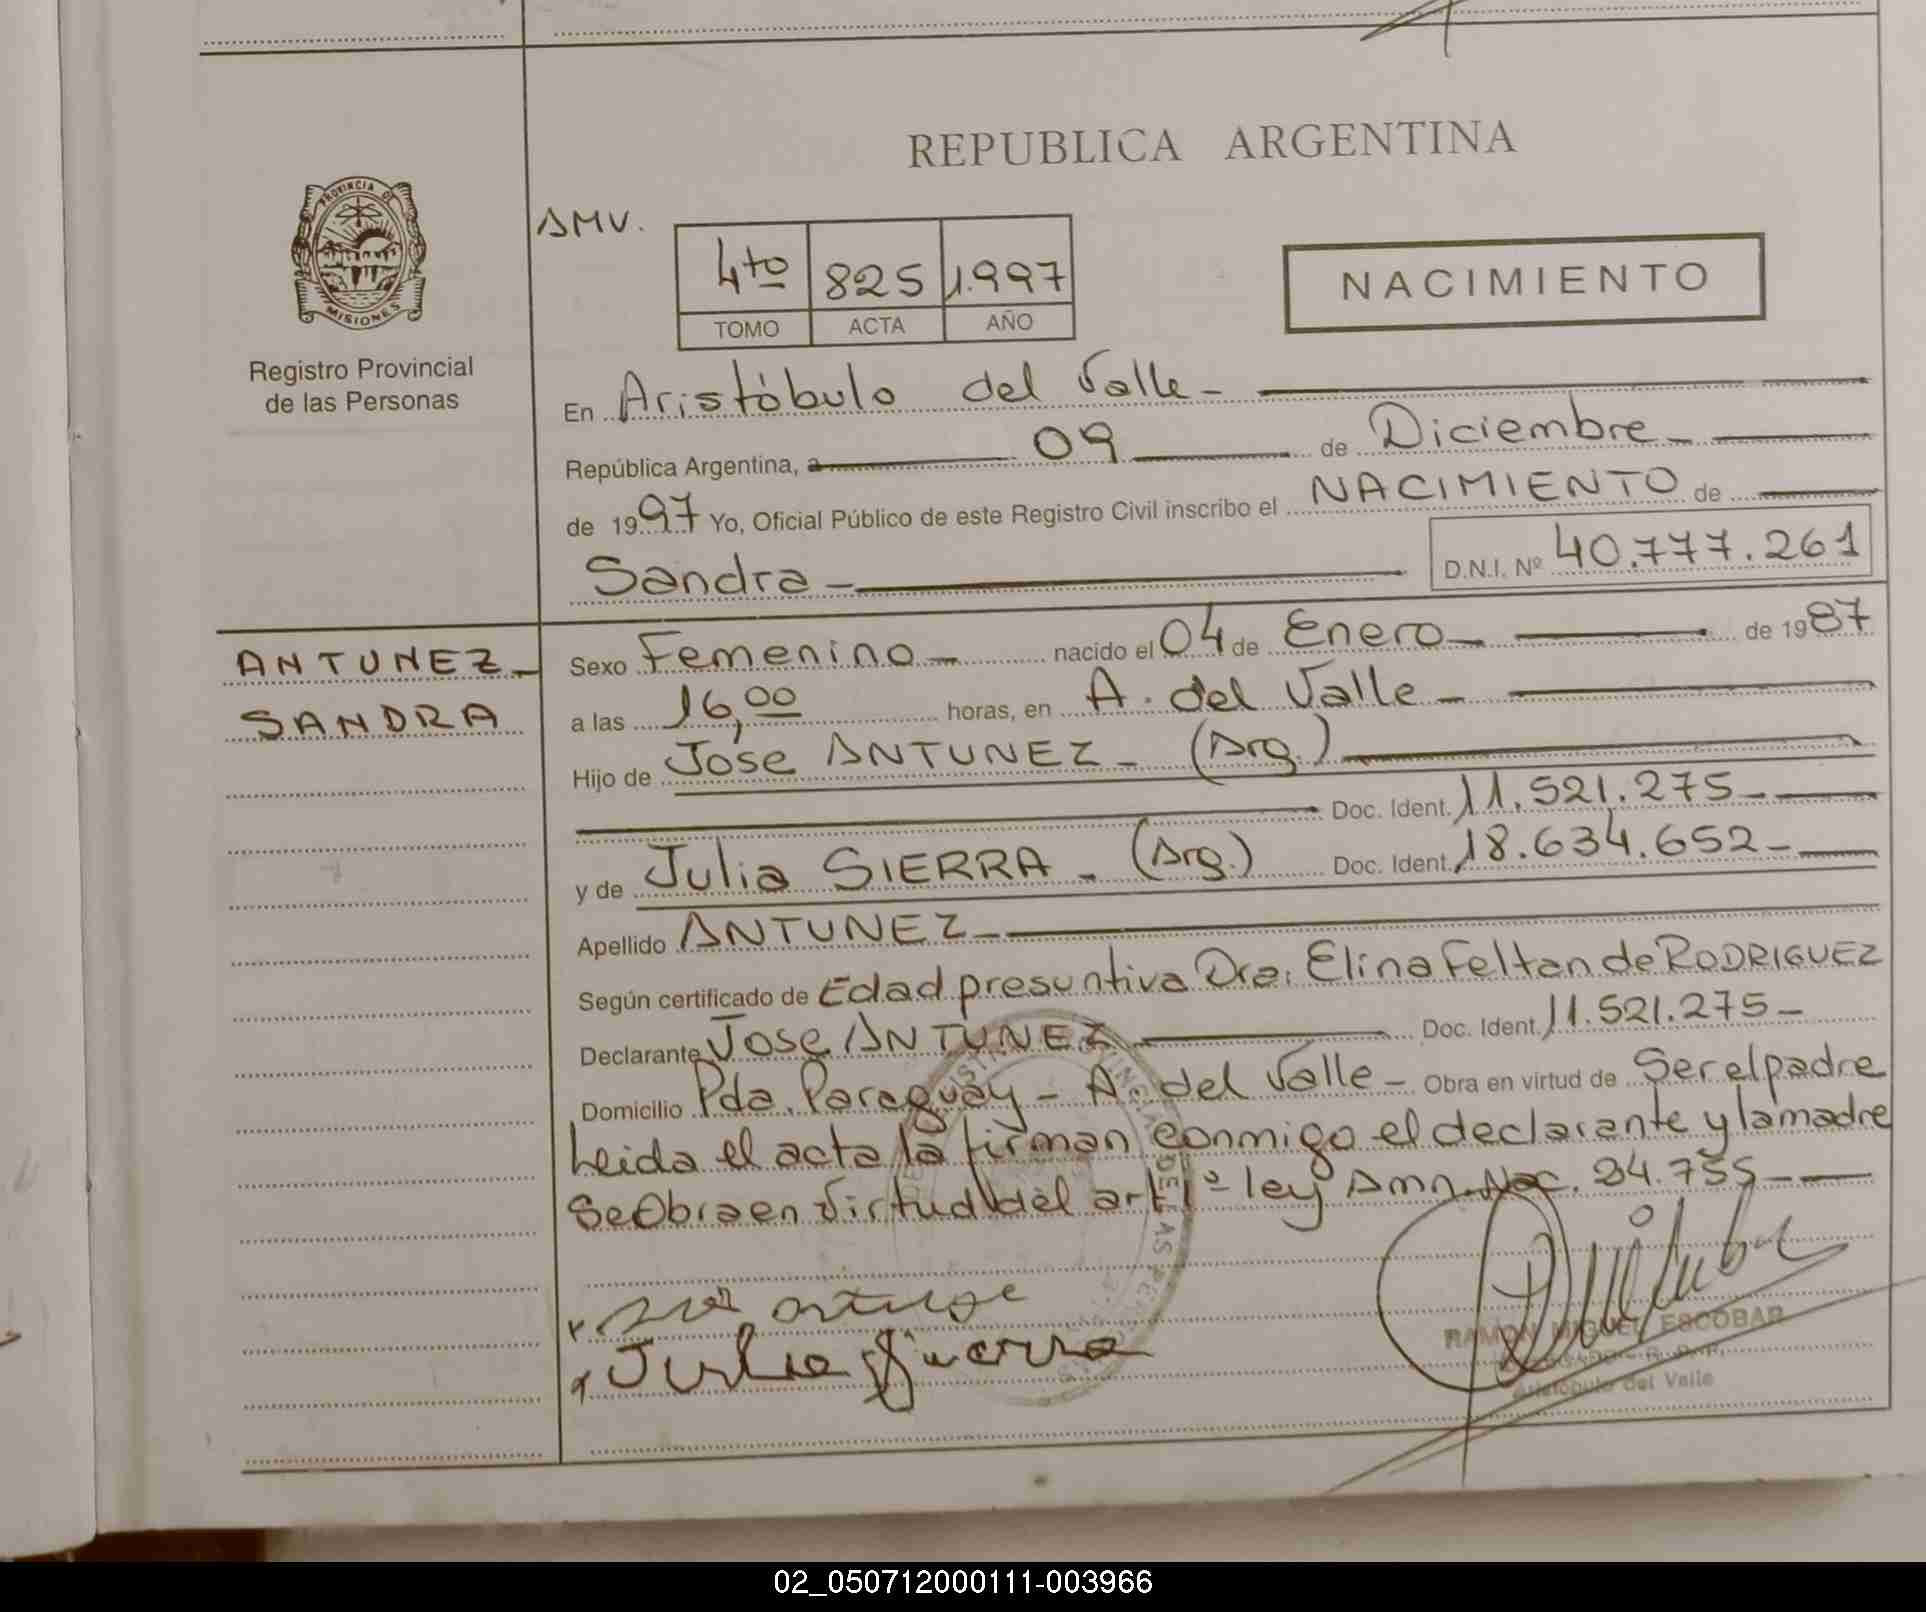 REPUBLICA ARGENTINA
PROVINCIA DE
MISIONES
Registro Provincial
de las Personas
AMV.
4to 825 1.997
TOMO ACTA AÑO
NACIMIENTO
En Aristóbulo del Valle-
República Argentina, a 09 de Diciembre-
de 1997 Yo, Oficial Público de este Registro Civil inscribo el NACIMIENTO de
Sandra- D.N.I. Nº 40.777.261
ANTUNEZ-
SANDRA
Sexo Femenino- nacido el 04 de Enero- de 1987
a las 16,00 horas, en A. del Valle-
Hijo de Jose ANTUNEZ- (Arg.)
Doc. Ident. 11.521.275-
y de Julia SIERRA- (Arg.) Doc. Ident. 18.634.652-
Apellido ANTUNEZ-
Según certificado de Edad presuntiva Dra. Elina Feltan de RODRIGUEZ
Declarante Jose ANTUNEZ Doc. Ident. 11.521.275-
Domicilio Pda. Paraguay - A. del Valle- Obra en virtud de Ser el padre
Leida el acta la firman conmigo el declarante y la madre
Se Obra en Virtud del art 1º ley Amn. Nac. 24.755-
Julia Sierra
RAMON MIGUEL ESCOBAR
Aristóbulo del Valle
02_050712000111-003966